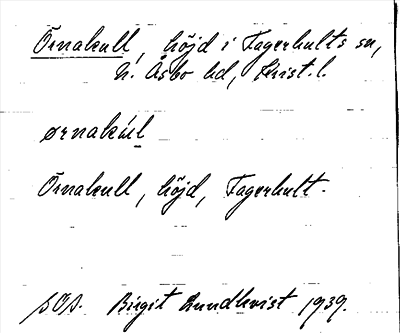 Örnakull, höjd i Fagerhults sn,
N. Åsbo hd, Krist. l.
ørnakúl
Örnakull, höjd, Fagerhult.
SOS. Birgit Lundkvist 1939.